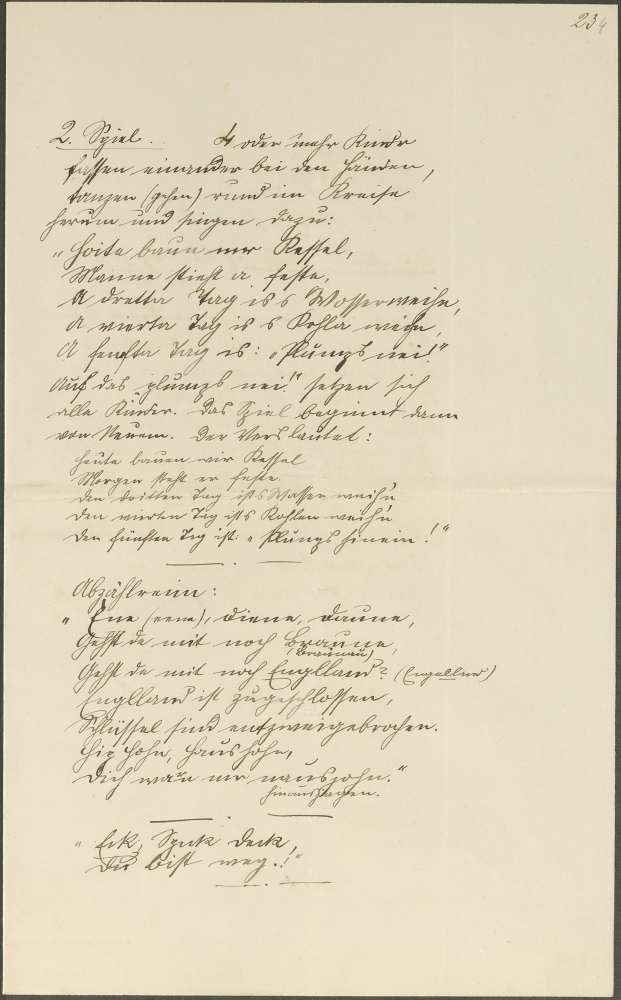 234
2. Spiel. 4 oder mehr Kinder
fassen einander bei den Händen,
tanzen (gehen) rund im Kreise
herum und singen dazu:
„Hoite baun mer Kessel,
Manne stieht a feste,
A dretta Tag is s Wosserweihe,
A vierta Tag is s Kohla weihe,
A fenfta Tag is: „Plumps nei!"
Auf das plumps nei!" setzen sich
alle Kinder. Das Spiel beginnt dann
von Neuem. Der Vers lautet:
Heute bauen wir Kessel
Morgen steht er feste.
Den dritten Tag ists Wasser weih'n
Den vierten Tag ists Kohlen weih'n
Den fünften Tag ist: „Plumps hinein!"
Abzählreim:
„Ene (eene), diene, daune,
Gehst de mit noch Braune,
(Braunau)
Gehst de mit noch Englland? (Engelland)
Englland ist zugeschlossen,
Schlüssel sind entzweigebrochen.
Hip Hohn, Haushohn,
Dich wa'n mer nausjohn."
hinausjagen.
„Eck, Speck Deck,
Du bist weg.!"